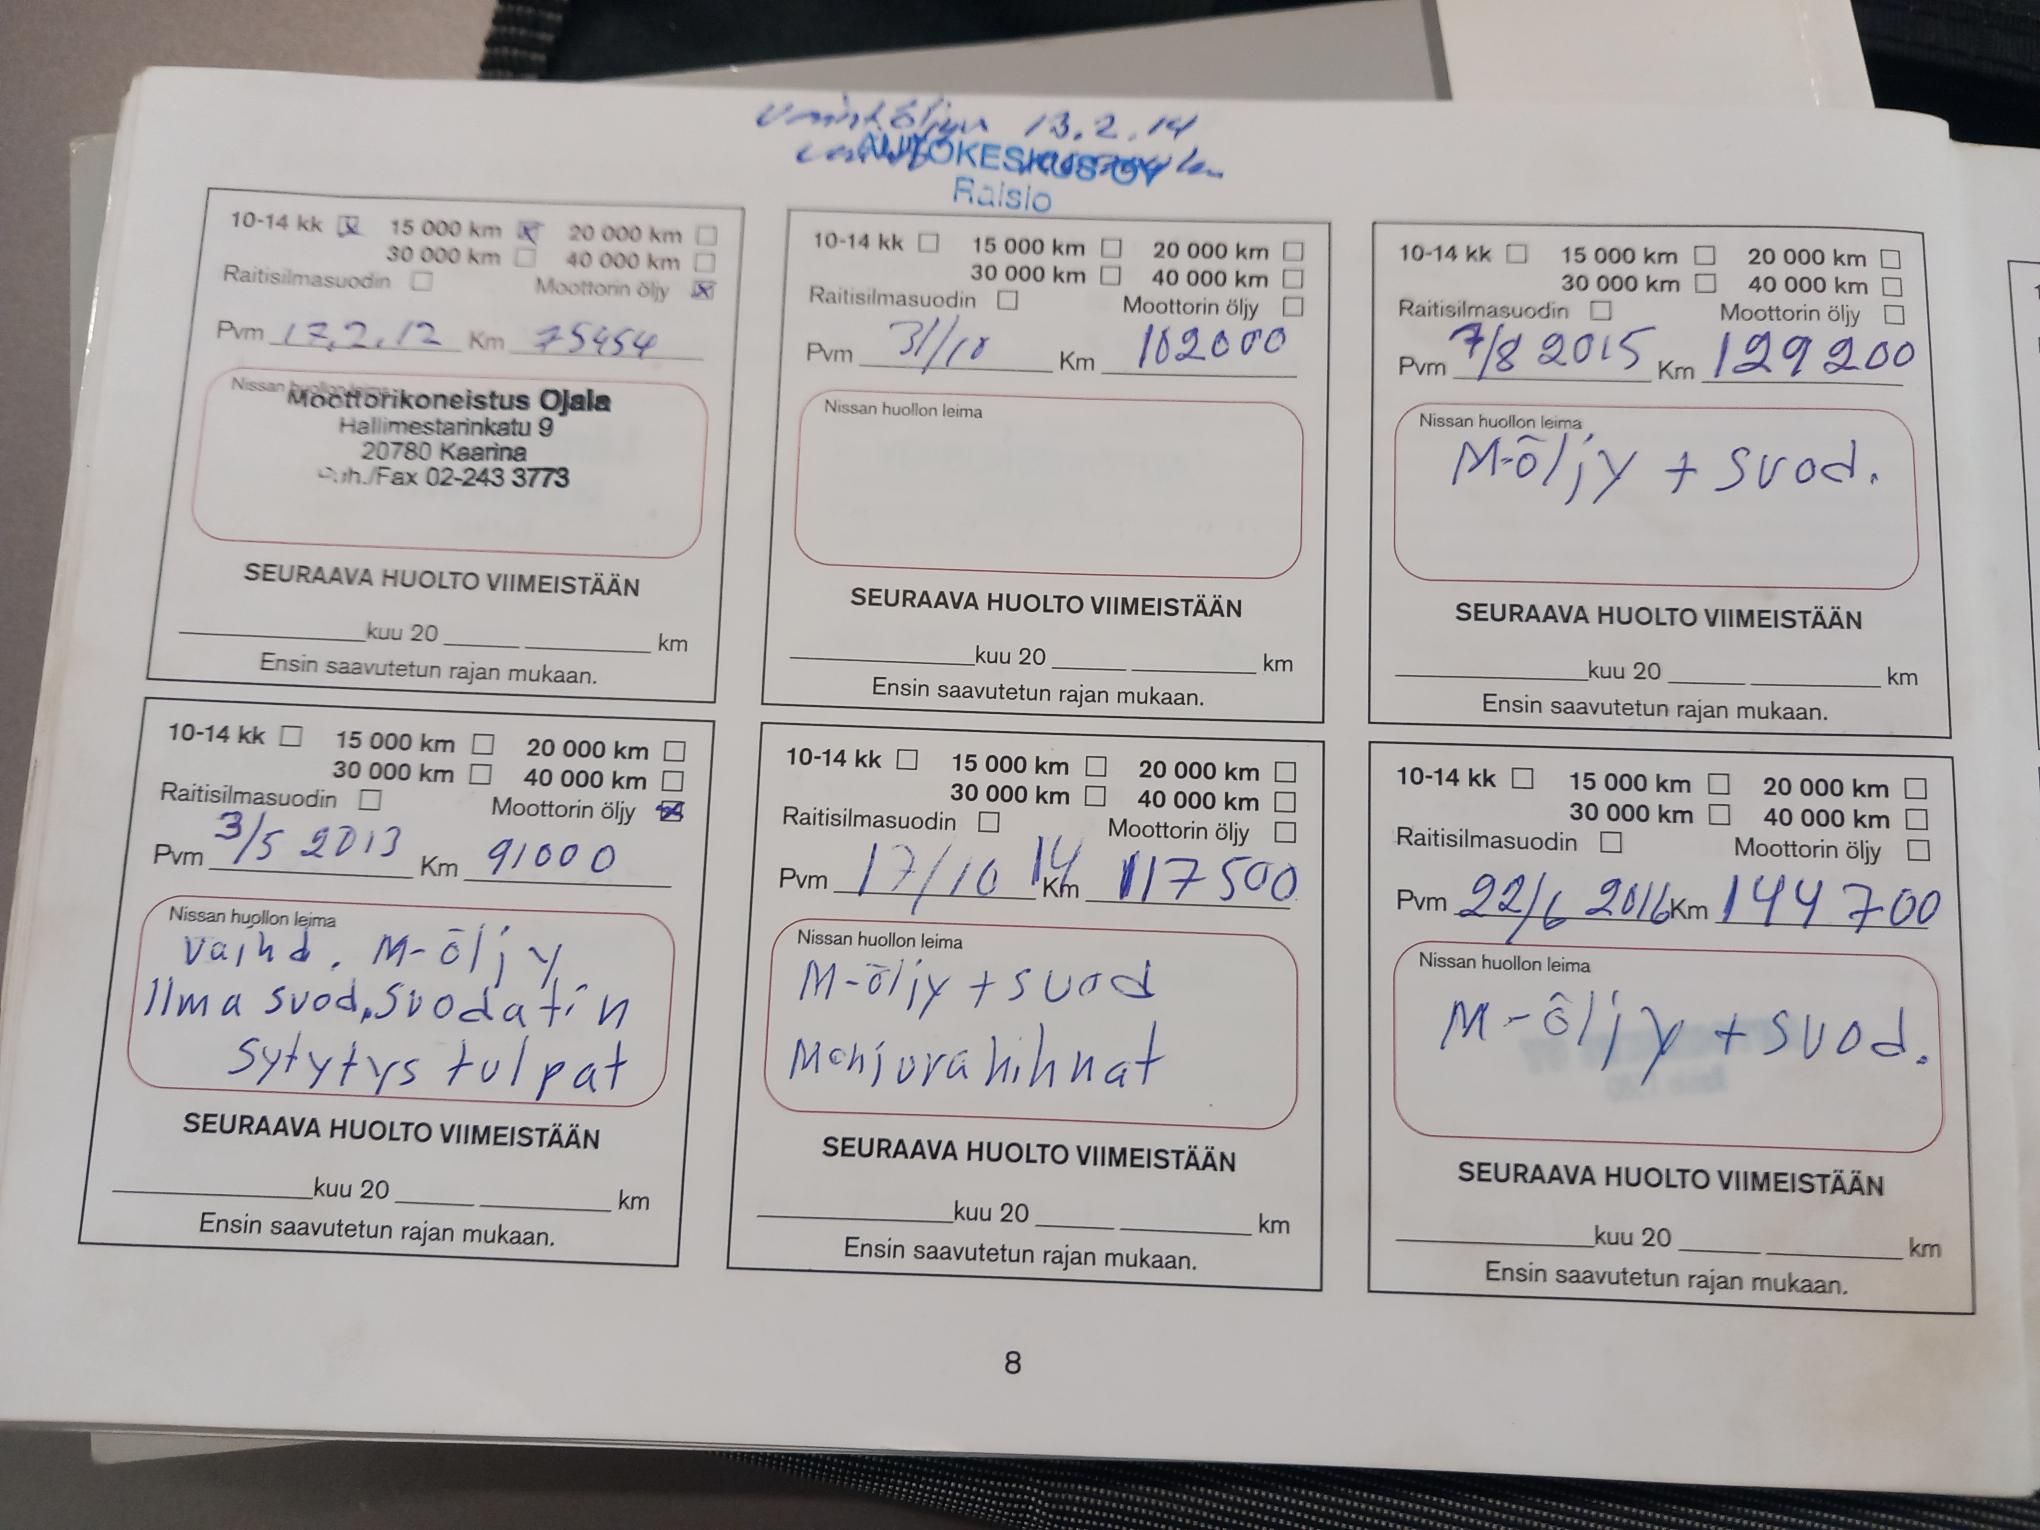 13.2.14
AUTOKESKUS OY
Raisio
10-14 kk 15 000 km 20 000 km
30 000 km 40 000 km
Raitisilmasuodin Moottorin öljy
Pvm 17.2.12 Km 75454
Nissan huollon leima
Moottorikoneistus Ojala
Hallimestarinkatu 9
20780 Kaarina
Puh./Fax 02-243 3773
SEURAAVA HUOLTO VIIMEISTÄÄN
kuu 20 km
Ensin saavutetun rajan mukaan.
10-14 kk 15 000 km 20 000 km
30 000 km 40 000 km
Raitisilmasuodin Moottorin öljy
Pvm 31/10 Km 102000
Nissan huollon leima
SEURAAVA HUOLTO VIIMEISTÄÄN
kuu 20 km
Ensin saavutetun rajan mukaan.
10-14 kk 15 000 km 20 000 km
30 000 km 40 000 km
Raitisilmasuodin Moottorin öljy
Pvm 7/8 2015 Km 129200
Nissan huollon leima
M-öljy + suod.
SEURAAVA HUOLTO VIIMEISTÄÄN
kuu 20 km
Ensin saavutetun rajan mukaan.
10-14 kk 15 000 km 20 000 km
30 000 km 40 000 km
Raitisilmasuodin Moottorin öljy
Pvm 3/5 2013 Km 91000
Nissan huollon leima
Vaihd. M-öljy
Ilma suod, suodatin
Sytytys tulpat
SEURAAVA HUOLTO VIIMEISTÄÄN
kuu 20 km
Ensin saavutetun rajan mukaan.
10-14 kk 15 000 km 20 000 km
30 000 km 40 000 km
Raitisilmasuodin Moottorin öljy
Pvm 17/10 14 Km 117500
Nissan huollon leima
M-öljy + suod
Moniurahihnat
SEURAAVA HUOLTO VIIMEISTÄÄN
kuu 20 km
Ensin saavutetun rajan mukaan.
10-14 kk 15 000 km 20 000 km
30 000 km 40 000 km
Raitisilmasuodin Moottorin öljy
Pvm 22/6 2016 Km 144700
Nissan huollon leima
M-öljy + suod.
SEURAAVA HUOLTO VIIMEISTÄÄN
kuu 20 km
Ensin saavutetun rajan mukaan.
8